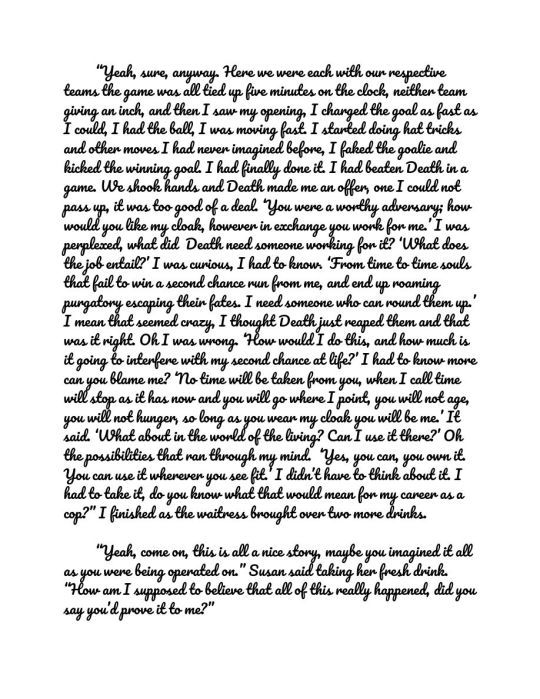 "Yeah, sure, anyway. Here we were each with our respective
teams the game was all tied up five minutes on the clock, neither team
giving an inch, and then I saw my opening, I charged the goal as fast as
I could, I had the ball, I was moving fast. I started doing hat tricks
and other moves I had never imagined before, I faked the goalie and
kicked the winning goal. I had finally done it. I had beaten Death in a
game. We shook hands and Death made me an offer, one I could not
pass up, it was too good of a deal. 'You were a worthy adversary; how
would you like my cloak, however in exchange you work for me.' I was
perplexed, what did Death need someone working for it? 'What does
the job entail?' I was curious, I had to know. 'From time to time souls
that fail to win a second chance run from me, and end up roaming
purgatory escaping their fates. I need someone who can round them up.'
I mean that seemed crazy, I thought Death just reaped them and that
was it right. Oh I was wrong. 'How would I do this, and how much is
it going to interfere with my second chance at life?' I had to know more
can you blame me? 'No time will be taken from you, when I call time
will stop as it has now and you will go where I point, you will not age,
you will not hunger, so long as you wear my cloak you will be me.' It
said. 'What about in the world of the living? Can I use it there?' Oh
the possibilities that ran through my mind. 'Yes, you can, you own it.
You can use it wherever you see fit.' I didn't have to think about it. I
had to take it, do you know what that would mean for my career as a
cop?" I finished as the waitress brought over two more drinks.
"Yeah, come on, this is all a nice story, maybe you imagined it all
as you were being operated on." Susan said taking her fresh drink.
"How am I supposed to believe that all of this really happened, did you
say you'd prove it to me?"